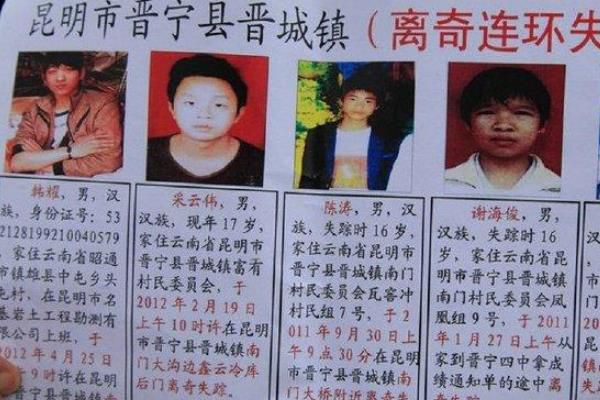 昆明市晋宁县晋城镇（离奇连环失
韩耀，男，汉
族，身份证号：53
2128199210040579
，家住云南省昭通
市镇雄县中屯乡头
屯村，在昆明市名
基岩土工程勘测有
限公司上班，于
2012年4月25日
9时许在昆明
晋宁县晋城镇南
采云伟，男，
汉族，现年17岁，
家住云南省昆明市
晋宁县晋城镇富有
村民委员会，于
2012年2月19日
上午10时许在昆明
市晋宁县晋城镇南
门大沟边鑫云冷库
后门离奇失踪。
陈涛，男，汉
族，失踪时16岁，
家住云南省昆明市
晋宁县晋城镇南门
村民委员会瓦窑冲
村民组7号，于2
011年9月30日上
午9点30分在昆明
市晋宁县晋城镇南
门大桥附近离奇失
谢海俊，男，
汉族，失踪时16
岁，家住云南省昆
明市晋宁县晋城镇
南门村民委员会凤
凰组9号，于2011
年1月27日上午从
家到晋宁四中拿成
绩通知单的途中离
奇失踪。